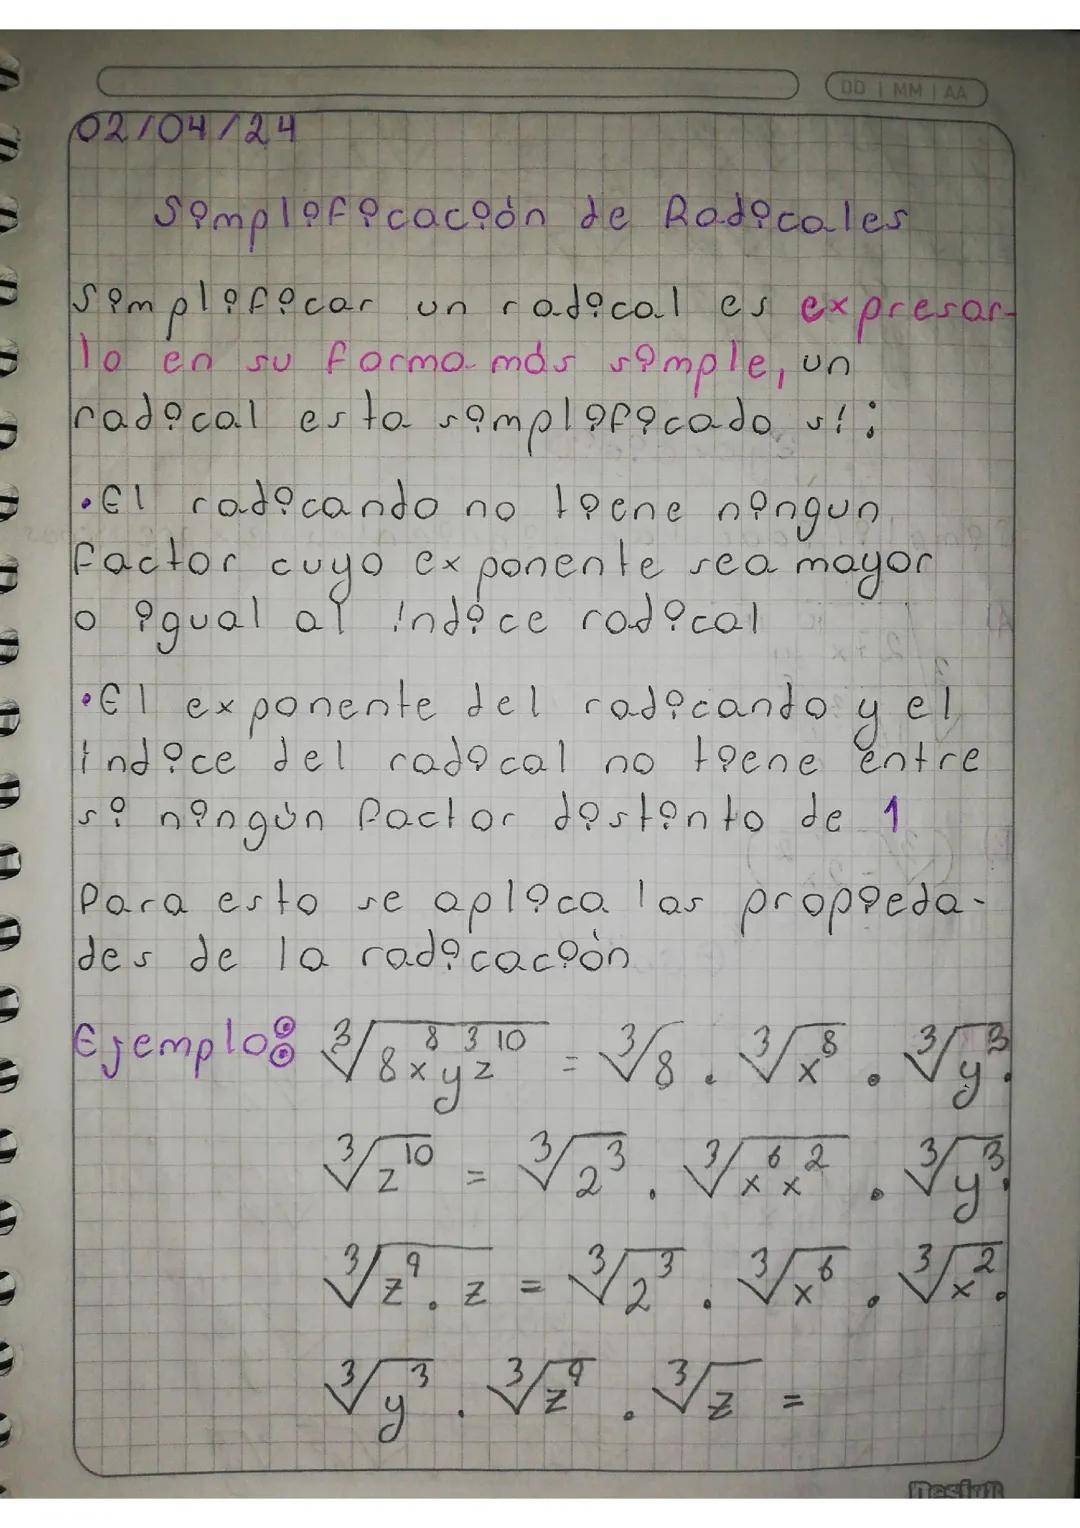 DD | MM | AA
02/04/24
Simplificación de Radicales
Simplificar un radical es expresar-
lo en su forma más simple, un
radical esta simplificado si:
•El radicando no tiene ningun
factor cuyo exponente sea mayor
o igual al índice radical
•El exponente del radicando y el
índice del radical no tiene entre
si ningún factor distinto de 1
Para esto se aplica las propieda-
des de la radicación
Ejemplo: ∛(8x⁸y³z¹⁰) = ∛8 . ∛x⁸ . ∛y³ .
∛z¹⁰ = ∛2³ . ∛(x⁶x²) . ∛y³ .
∛(z⁹ . z) = ∛2³ . ∛x⁶ . ∛x² .
∛y³ . ∛z⁹ . ∛z =